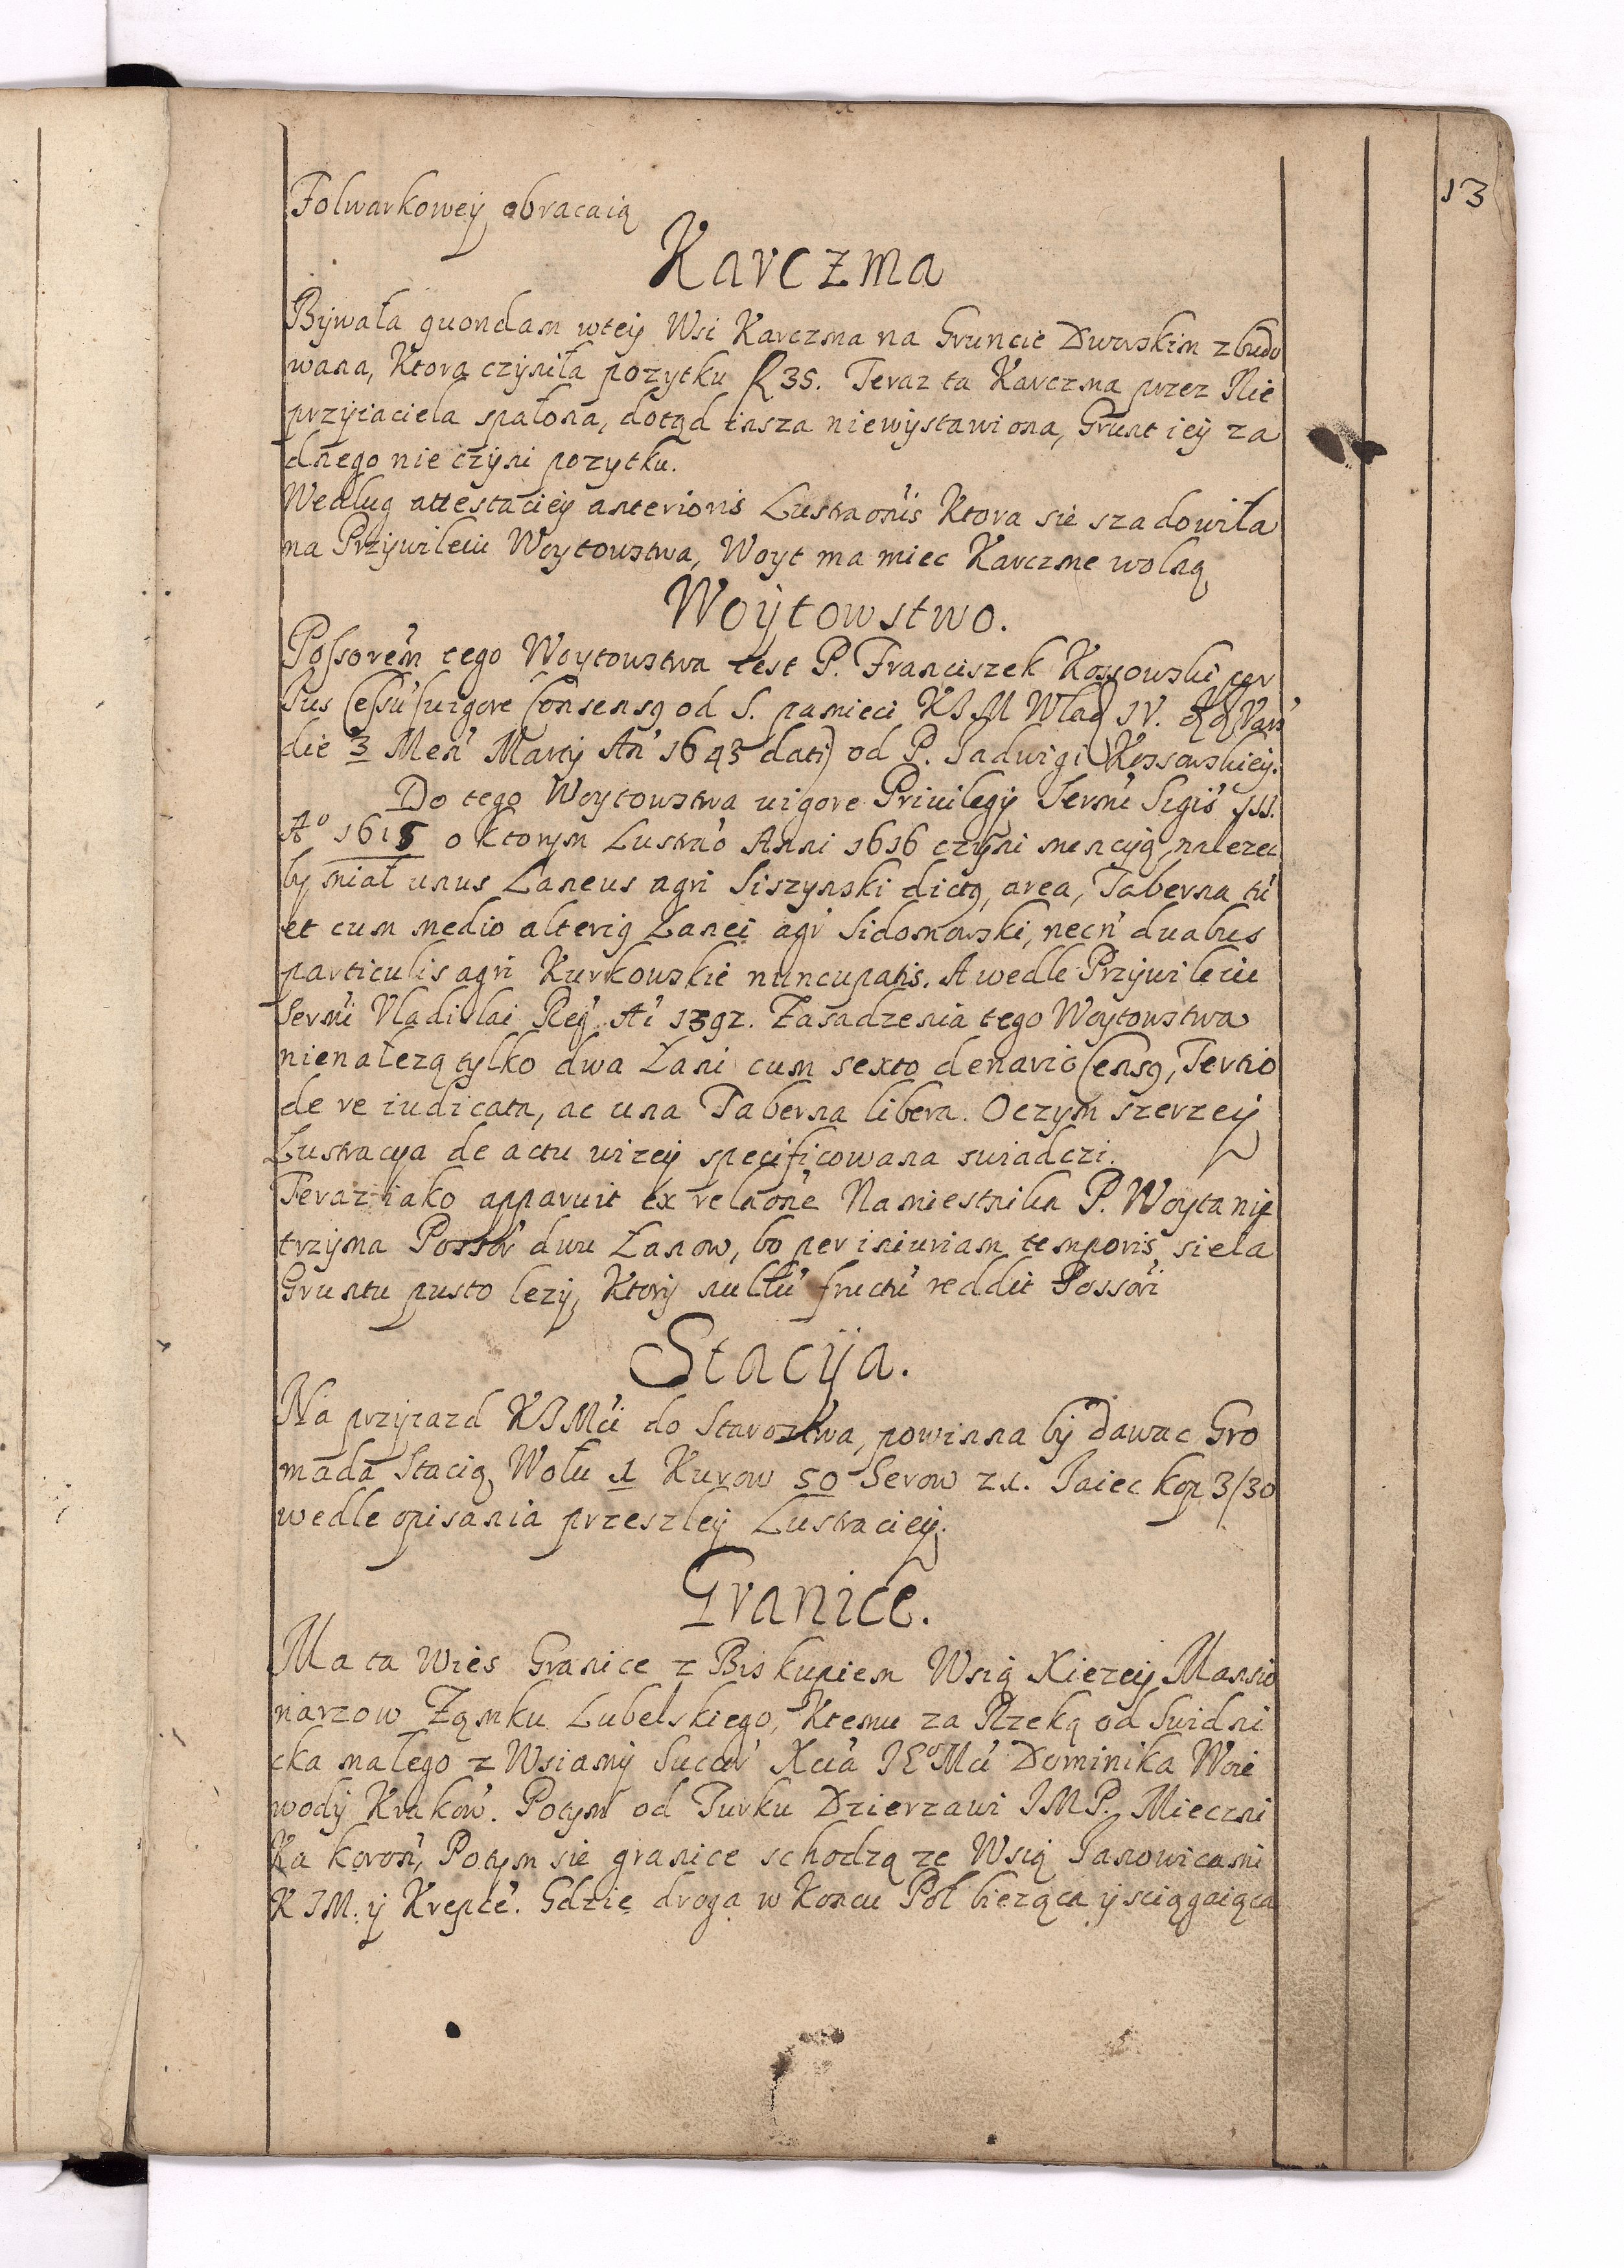 13
Folwarkoweÿ obracaią
Karczma
Bÿwała quondam wteÿ Wsi Karczma na Gruncie Dworskim zbudo
wana, Ktora czÿniła pozytku f 35. Teraz ta Karczma przez Nie
przÿiaciela spałona, dotąd insza niewÿstawiona, Grunt ieÿ za
dnego nie czÿni pozytku.
Wedlug attestacieÿ anterioris Lustraonis Ktora sie sadowiła
na Przÿwileiu Woytowstwa, Woyt ma miec Karczme wolną
Woÿtowstwo.
Possorem tego Woytowstwa iest P. Franciszek Kossowski per
Ius Cessu (uigore Consensq od S. pamieci KIM Wlad IV. Vars
die 3 Men Martÿ An 1643 dati) od P. Iadwigi Kossowskieÿ.
Do tego Woytowstwa uigore Priuilegÿ Sermi Sigis III.
Ao 1615 o ktorym Lustrao Anni 1616 czÿni mencyą, nalezec
by miał unus Laneus agri Siszynski dictq, area, Taberna tu
et cum medio alteriq Lanei agr Sidomowski, necn duabus
particulis agri Kurkowskie nuncupatis. A wedle Przÿwileiu
Sermi Vladislai Reg Ai 1392. Zasadzenia tego Woÿtowstwa
nienalezą tylko dwa Lani cum sexto denario Censq, Tertio
de re iudicata, ac una Taberna libera. Oczym szerzeÿ
Lustracya de actu wizeÿ specificowana swiadczi.
Teraz iako apparuit ex relaone Namiestnika P. Woyta nie
trzÿma Possor dwu Lanow, bo per iniuriam temporis siela
Gruntu pusto lezÿ, Ktorÿ nullu fructu reddit Possori
Stacÿa.
Na przÿiazd KIMci do Starostwa, powinna bÿ dawac Gro
mada Stacią Wołu 1 Kurow 50 Serow 21. Iaiec kop 3/30
wedle opisania przeszleÿ Lustracieÿ.
Granice.
Ma ta Wies Granice z Biskupiem Wsią Xiezeÿ Mansio
narzow Zamku Lubelskiego, Ktemu za Rzeką od Swidni
cka małego z Wsiamÿ Succer Xcia IEoMci Dominika Woie
wodÿ Krakow. Potym od Turku Dzierzawi IMP. Mieczni
ka koron, Potym sie granice schodzą ze Wsią Ianowicami
KIM. ÿ Krepce. Gdzie droga w Koncu Pol bieząca ÿ sciągaiąca